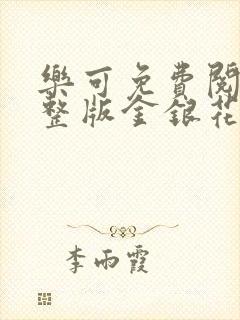 樂可免費閱
整版金銀花
李雨霞